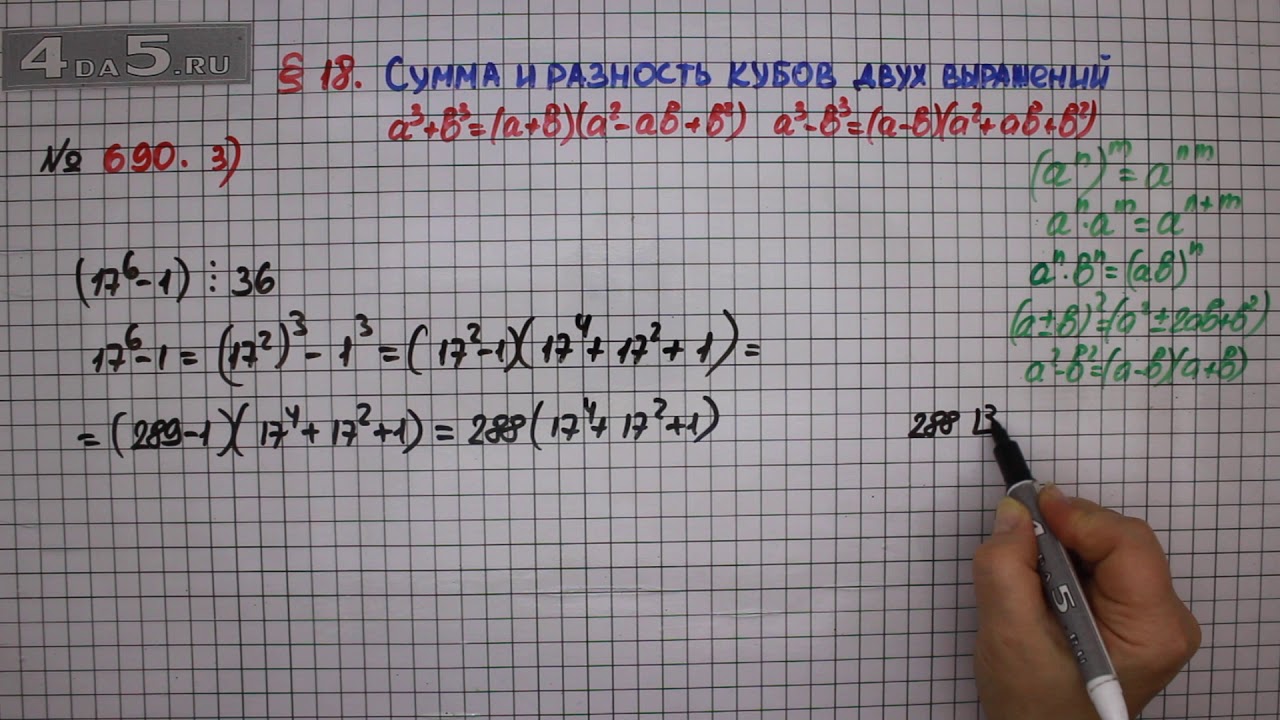 4DA5.RU
§ 18. Сумма и разность кубов двух выражений
a³+b³=(a+b)(a²-ab+b²) a³-b³=(a-b)(a²+ab+b²)
№ 690. 3)
(aⁿ)ᵐ=aⁿᵐ
aⁿ·aᵐ=aⁿ⁺ᵐ
aⁿ·bⁿ=(ab)ⁿ
(a±b)²=(a²±2ab+b²)
a²-b²=(a-b)(a+b)
(17⁶-1)⋮36
17⁶-1=(17²)³-1³=(17²-1)(17⁴+17²+1)=
=(289-1)(17⁴+17²+1)=288(17⁴+17²+1)
288
4DA5